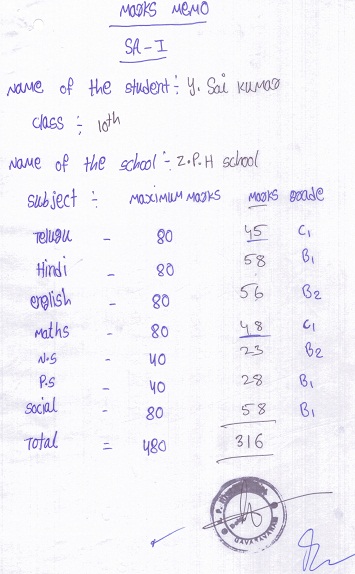 Marks Memo
SA-I
Name of the student :- Y. Sai Kumar
class :- 10th
Name of the school :- Z.P.H school
subject :- maximum marks marks grade
Telugu - 80 45 C1
Hindi - 80 58 B1
english - 80 56 B2
maths - 80 48 C1
N.S - 40 23 B2
P.S - 40 28 B1
social - 80 58 B1
Total = 480 316